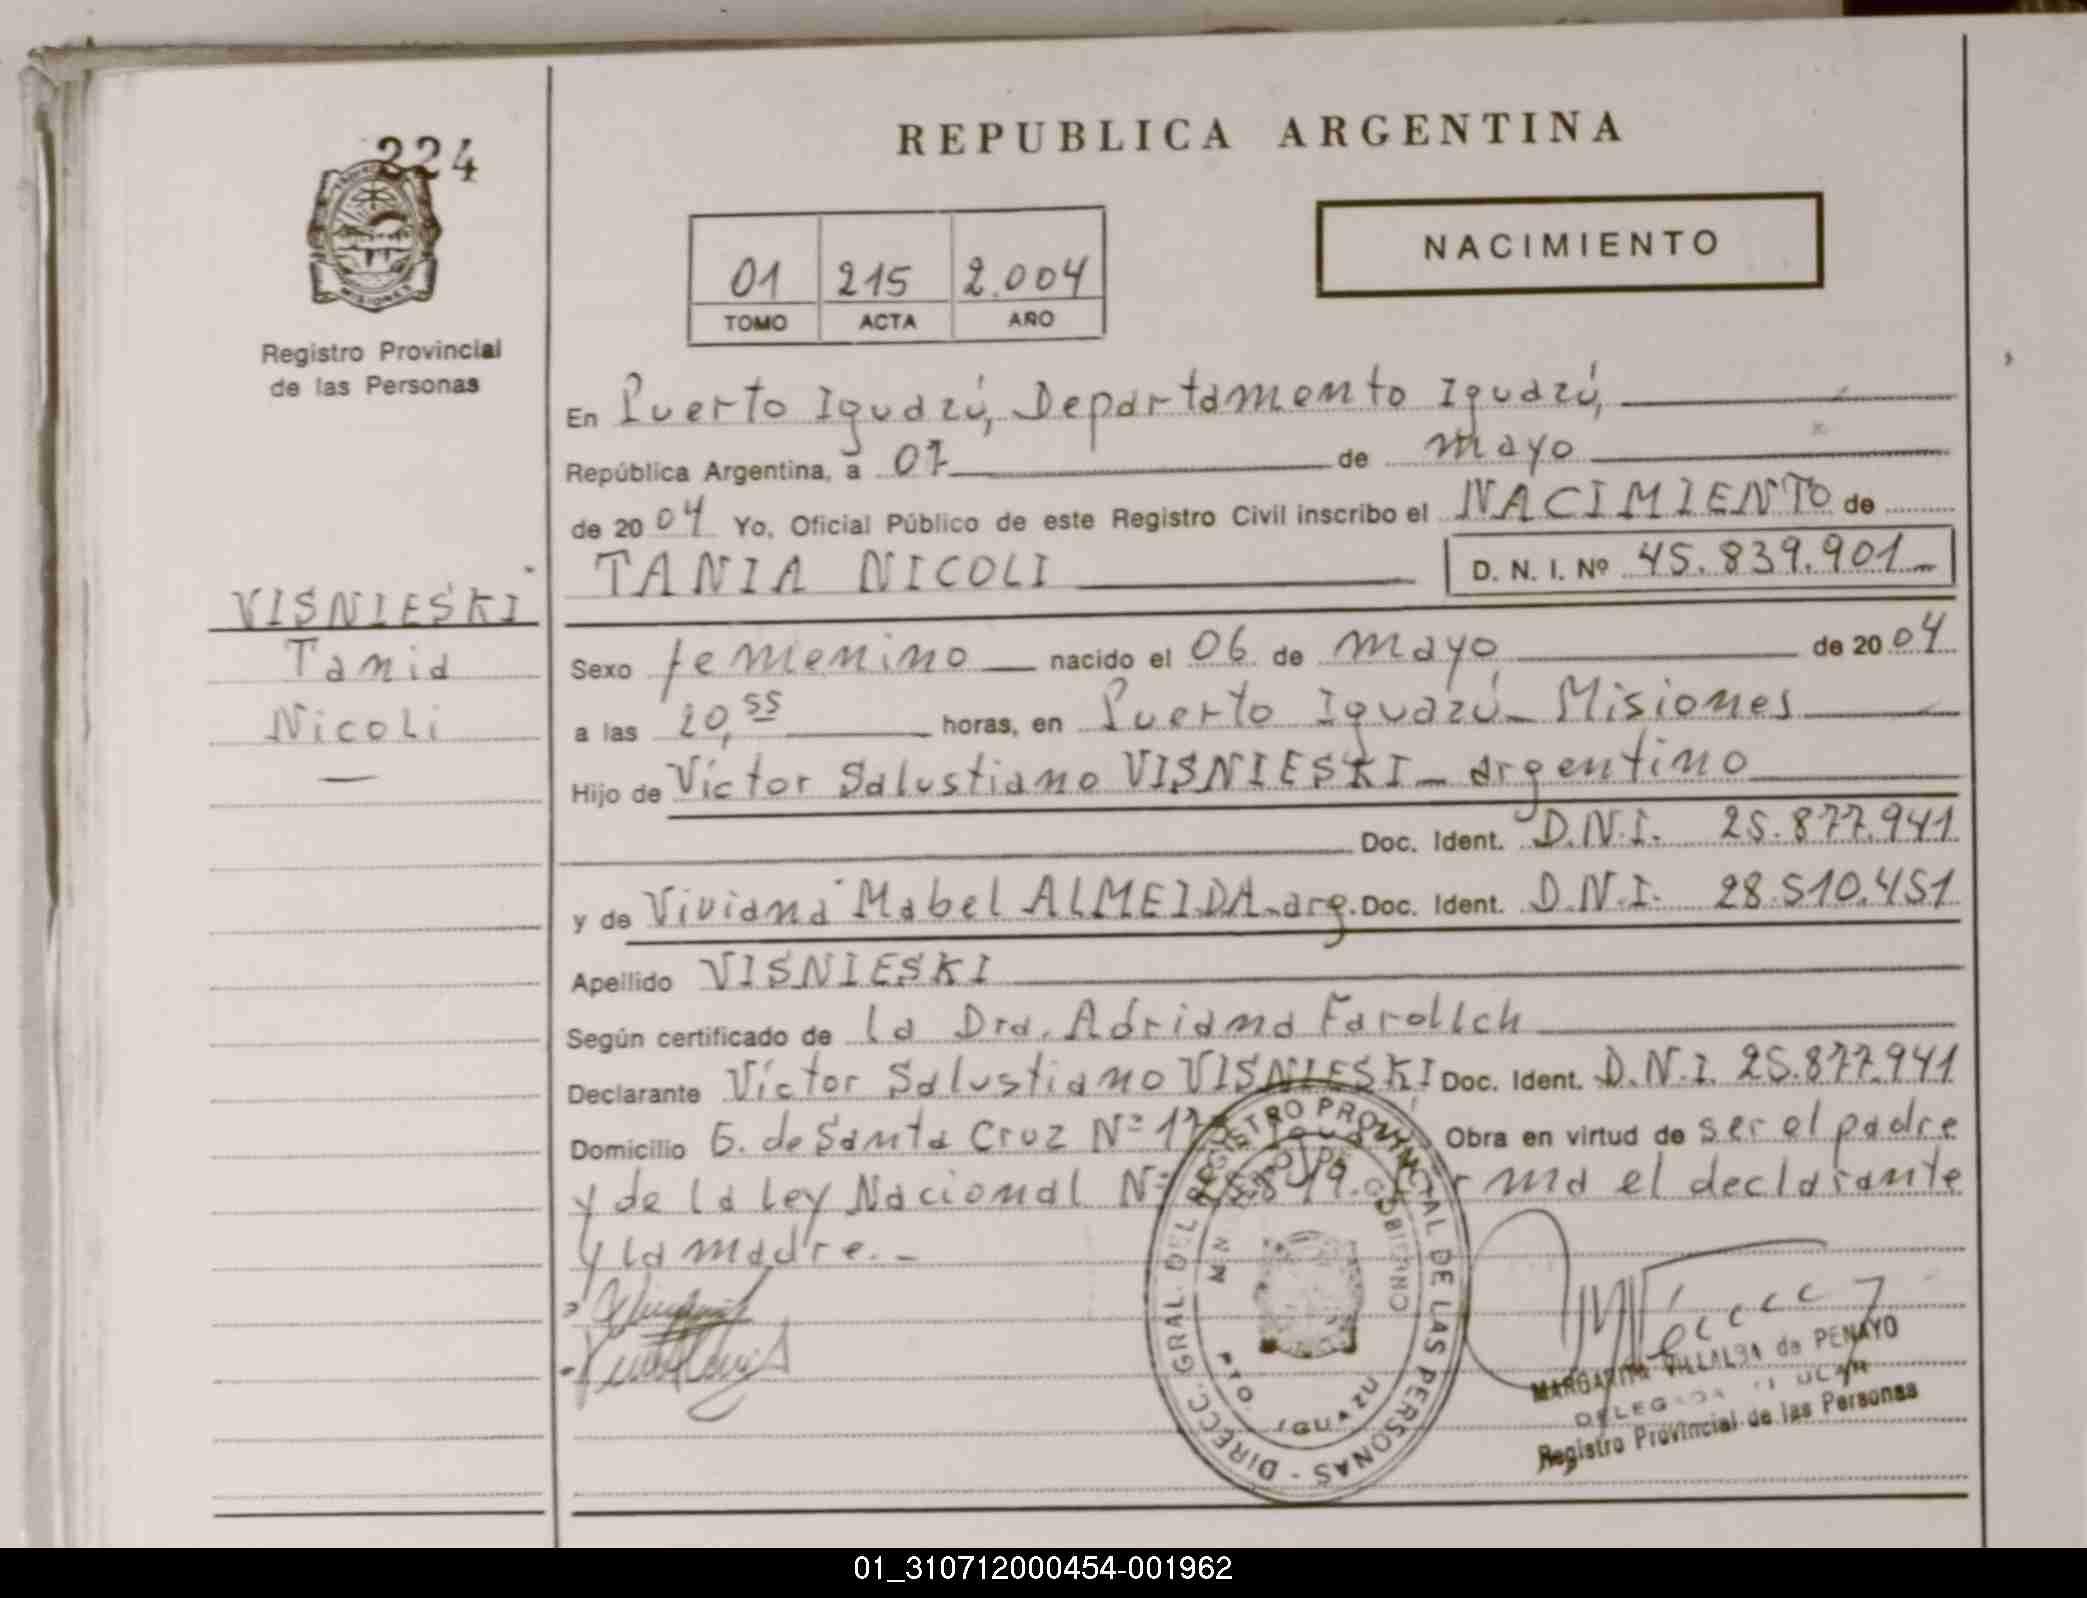 224
REPUBLICA ARGENTINA
NACIMIENTO
01 215 2.004
TOMO ACTA AÑO
MISIONES
Registro Provincial
de las Personas
En Puerto Iguazú, Departamento Iguazú,
República Argentina, a 07 de mayo
de 2004 Yo, Oficial Público de este Registro Civil inscribo el NACIMIENTO de
TANIA NICOLI D. N. I. Nº 45.839.901
VISNIESKI
Tania
Nicoli
Sexo femenino nacido el 06 de mayo de 2004
a las 20,55 horas, en Puerto Iguazú - Misiones
Hijo de Víctor Salustiano VISNIESKI - argentino
Doc. Ident. D.N.I. 25.877.941
y de Viviana Mabel ALMEIDA - arg. Doc. Ident. D.N.I. 28.510.451
Apellido VISNIESKI
Según certificado de la Dra. Adriana
Declarante Víctor Salustiano VISNIESKI Doc. Ident. D.N.I. 25.877.941
Domicilio G. de Santa Cruz Nº Obra en virtud de ser el padre
y de la Ley Nacional Nº el declarante
y la madre.-
DIRECC. GRAL. DEL REGISTRO PROVINCIAL DE LAS PERSONAS
GOBIERNO
PTO. IGUAZU
MARGARITA VILLALBA de PENAYO
Registro Provincial de las Personas
01_310712000454-001962